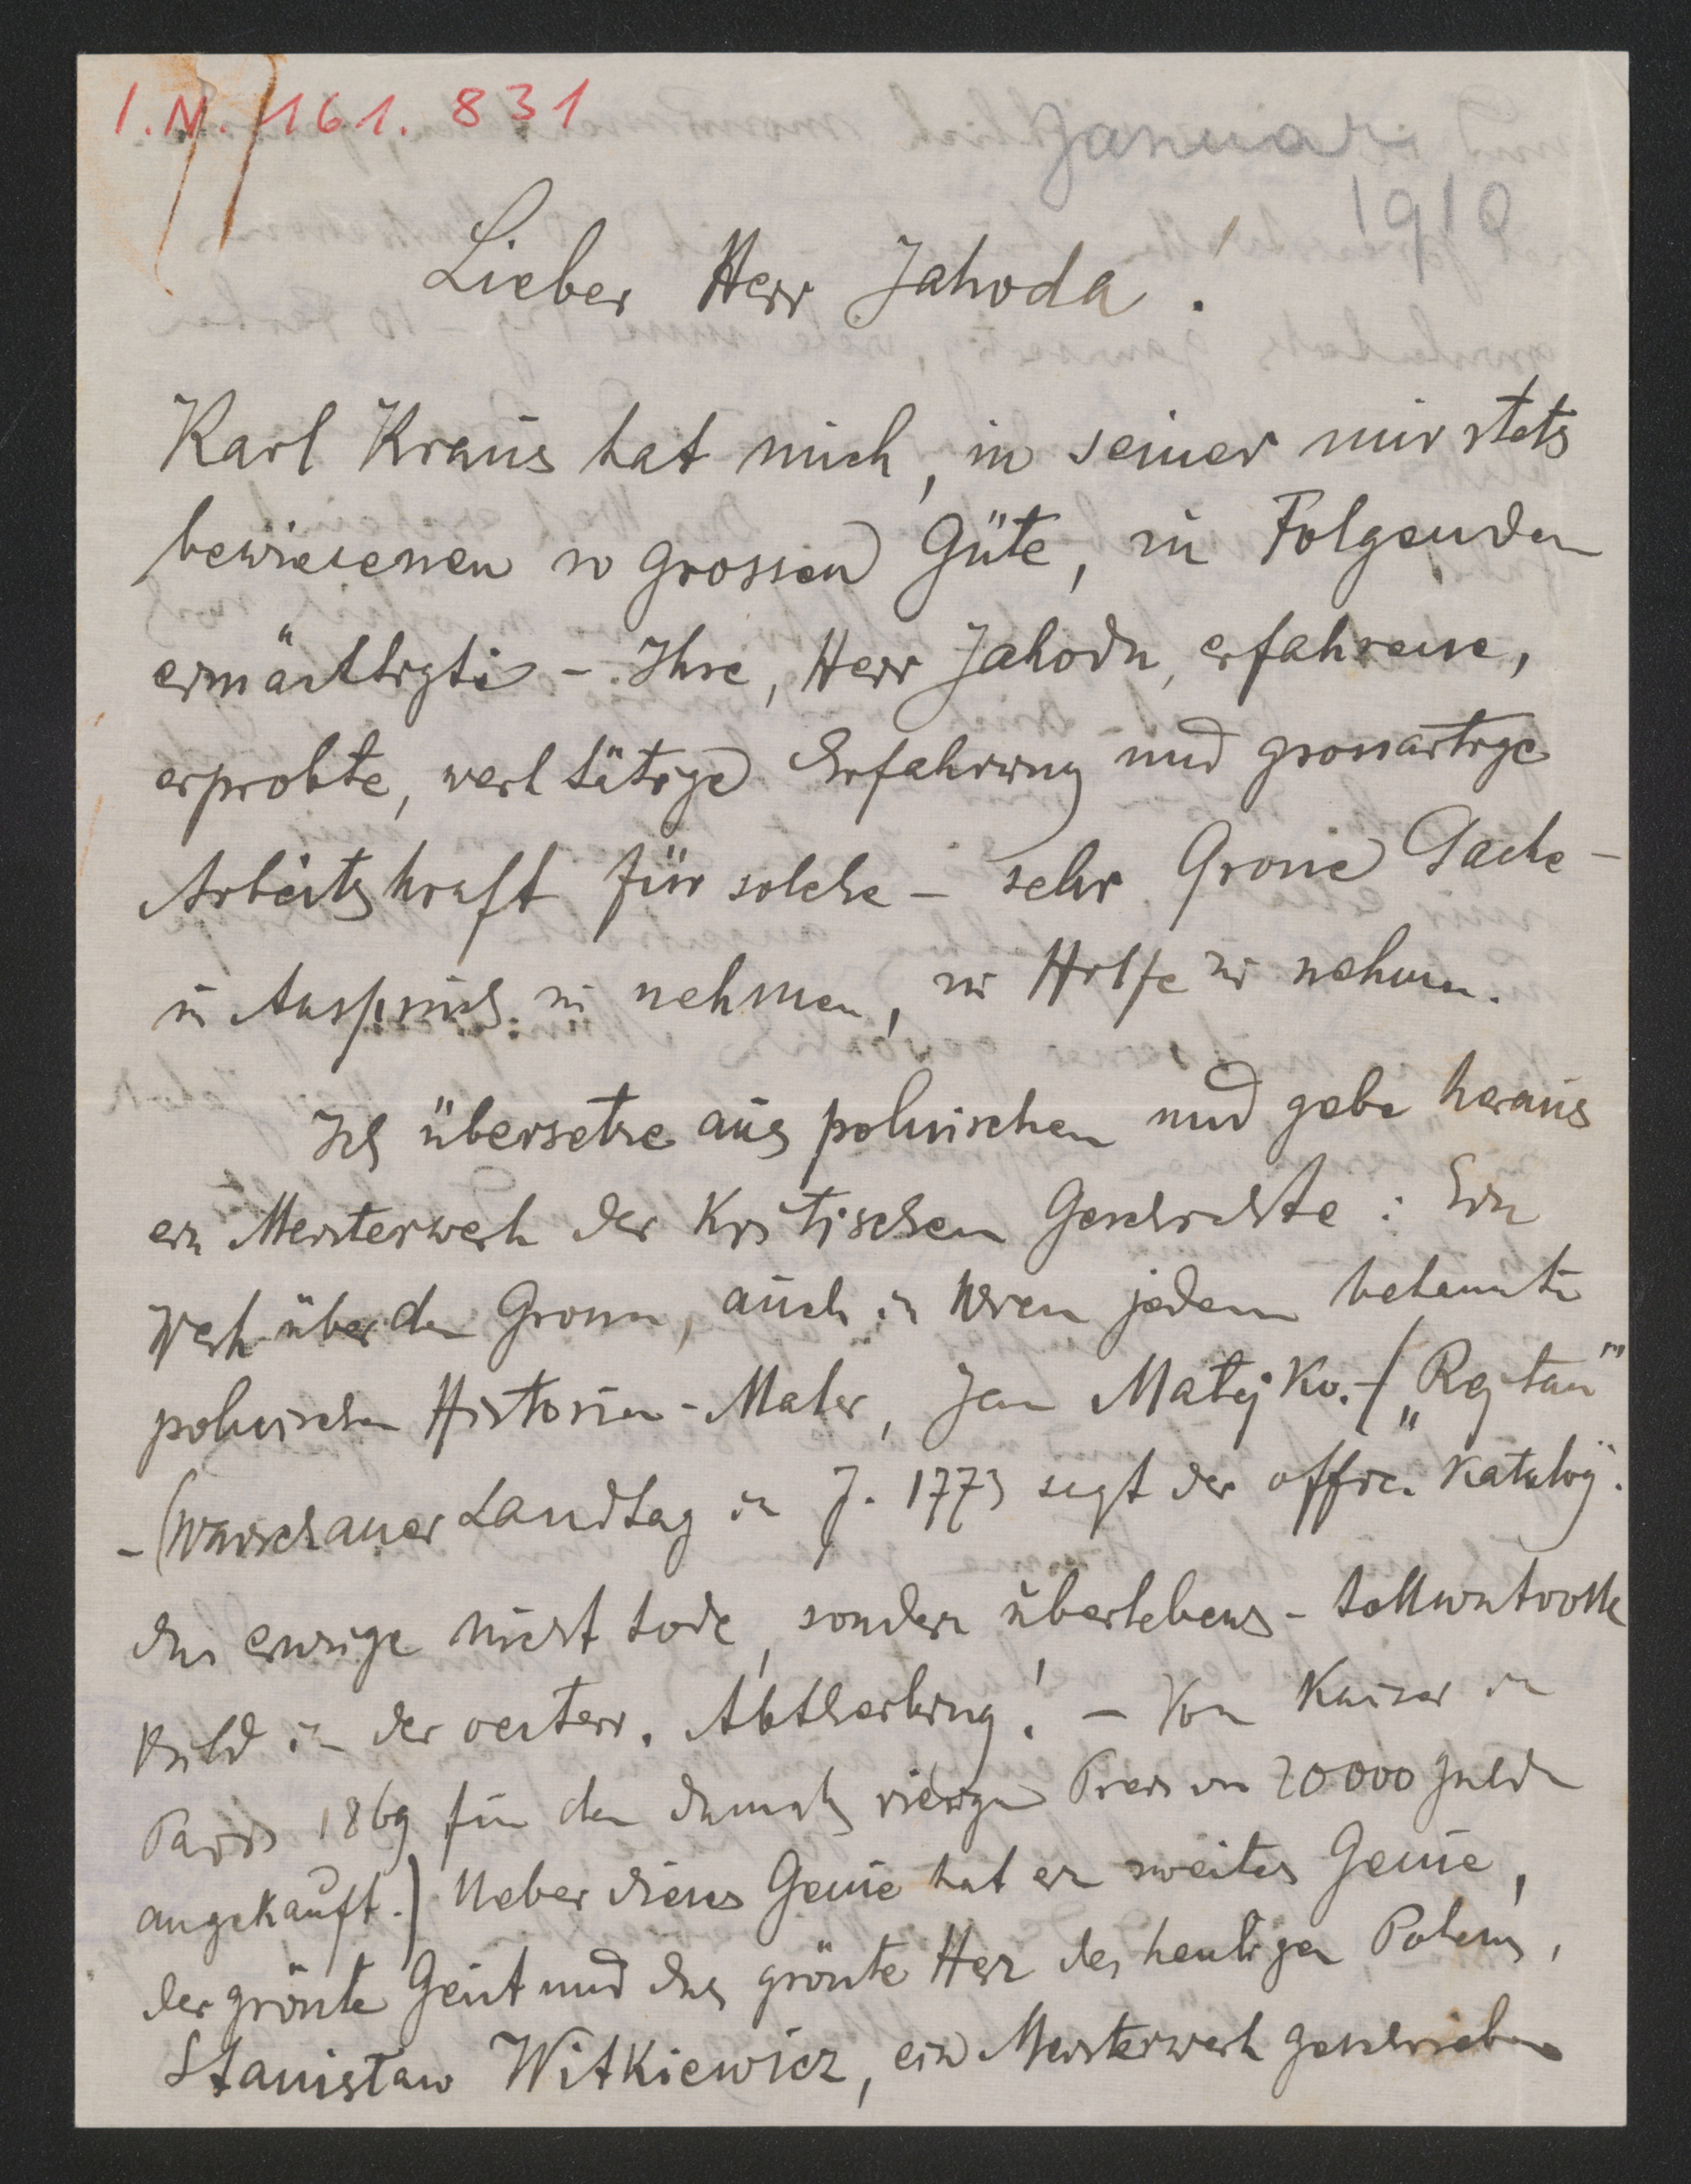 I.N. 161.831
Januar
1910
Lieber Herr Jahoda!
Karl Kraus hat mich, in seiner mir stets
bewiesenen so grossen Güte, zu Folgenden
ermächtigt – Ihre, Herr Jahoda, erfahrene,
erprobte, werktätige Erfahrung und grossartige
Arbeitskraft für solche – sehr Grosse Sache –
in Anspruch zu nehmen, zu Hilfe zu nehmen.
Ich übersetze aus polnischen und gebe heraus
ein Meisterwerk der Kritischen Geschichte: Ein
Werk über den Grossen, auch in Wien jedem bekannten
polnischen Historien-Maler, Jan Matejko. – („Rejtan"
– (Warschauer Landtag in J. 1773 sagt der offic. Katalog.
das ewige nicht tode, sondern überlebens-
Bild in der oesterr. Abtheilung! – Von Kaiser in
Paris 1869 für den damals riesigen Preis von 20000 Gulden
angekauft.) Ueber dieses Genie hat ein zweites Genie,
der grösste Geist und das grösste Herz des heutigen Polens,
Stanisław Witkiewicz, ein Meisterwerk geschrieben